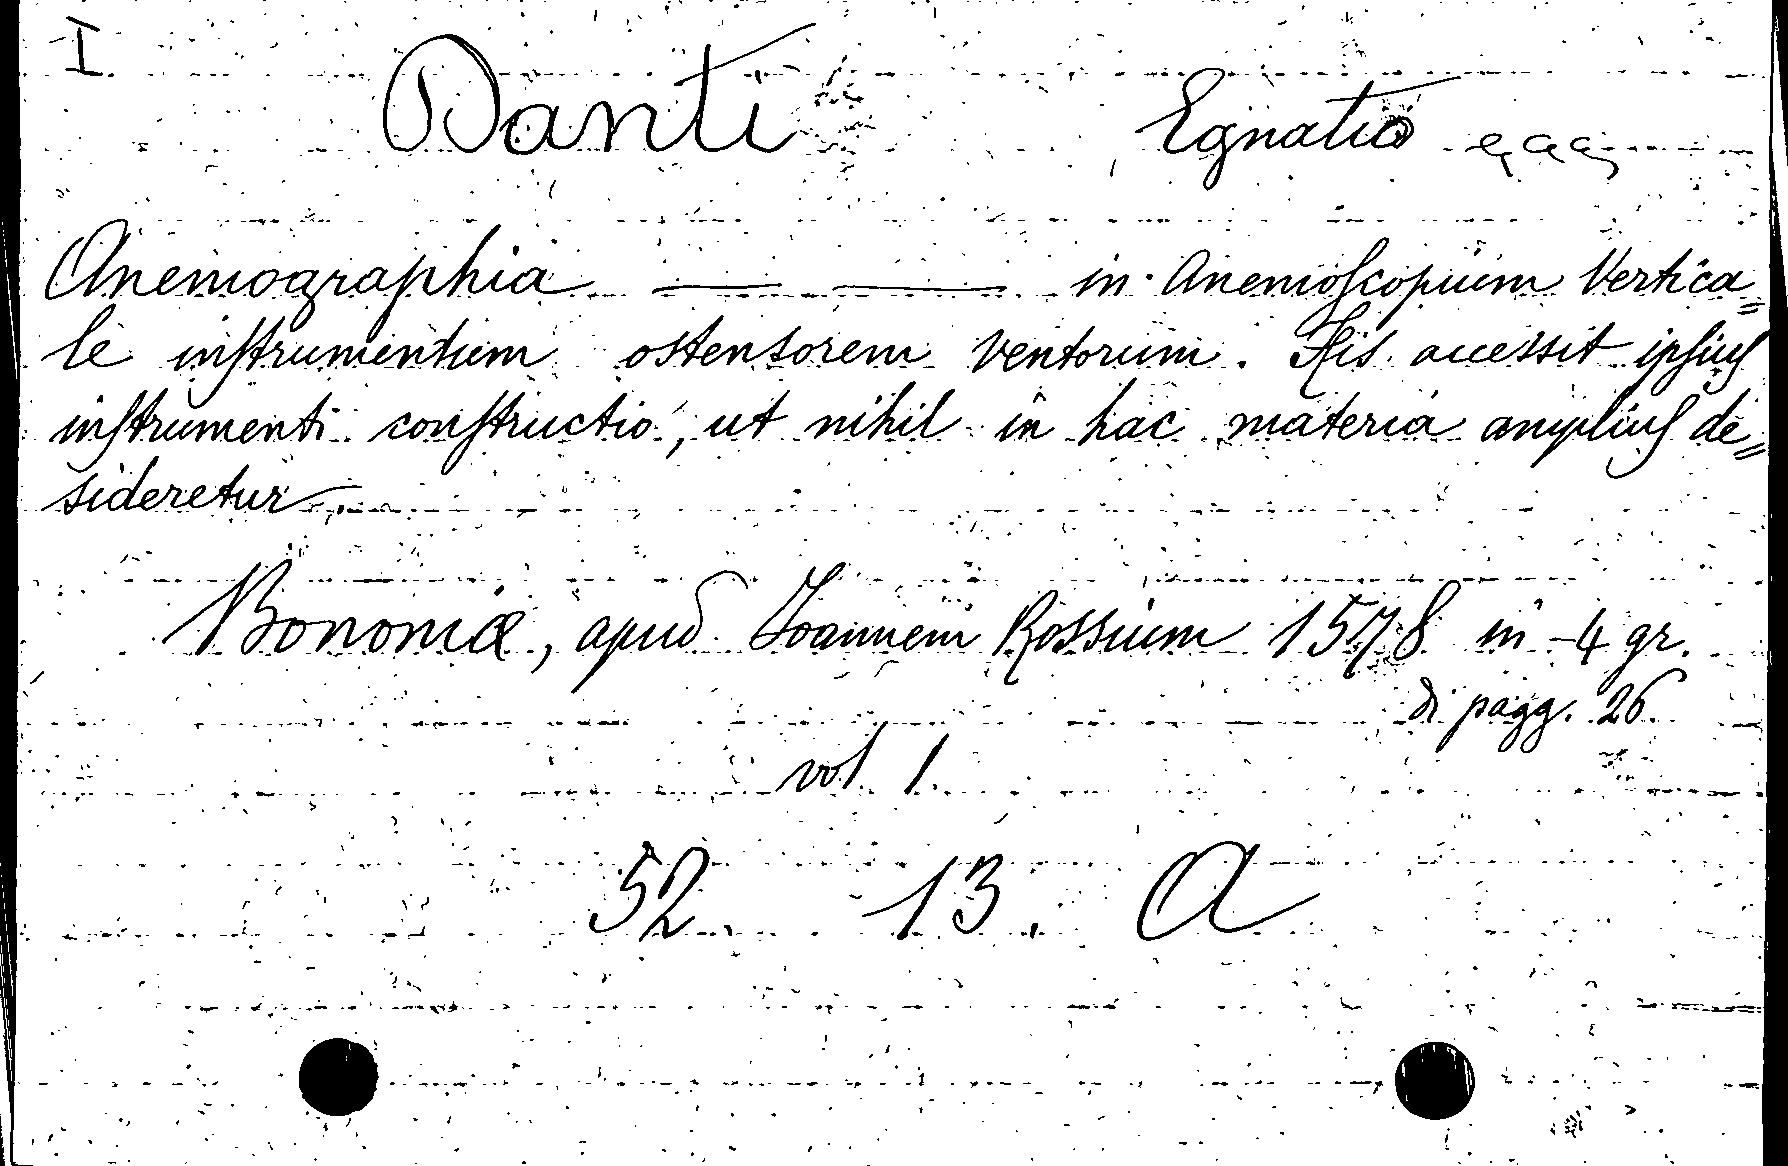 I
Danti Egnatio
Anemographia — — in Anemoscopium Vertica=
le instrumentum ostensorem ventorum. His accessit ipsius
instrumenti constructio, ut nihil in hac materia amplius de=
sideretur.
Bononiæ, apud Joannem Rossium 1578 in-4 gr.
di pagg. 26.
vol. 1.
52. 13. A